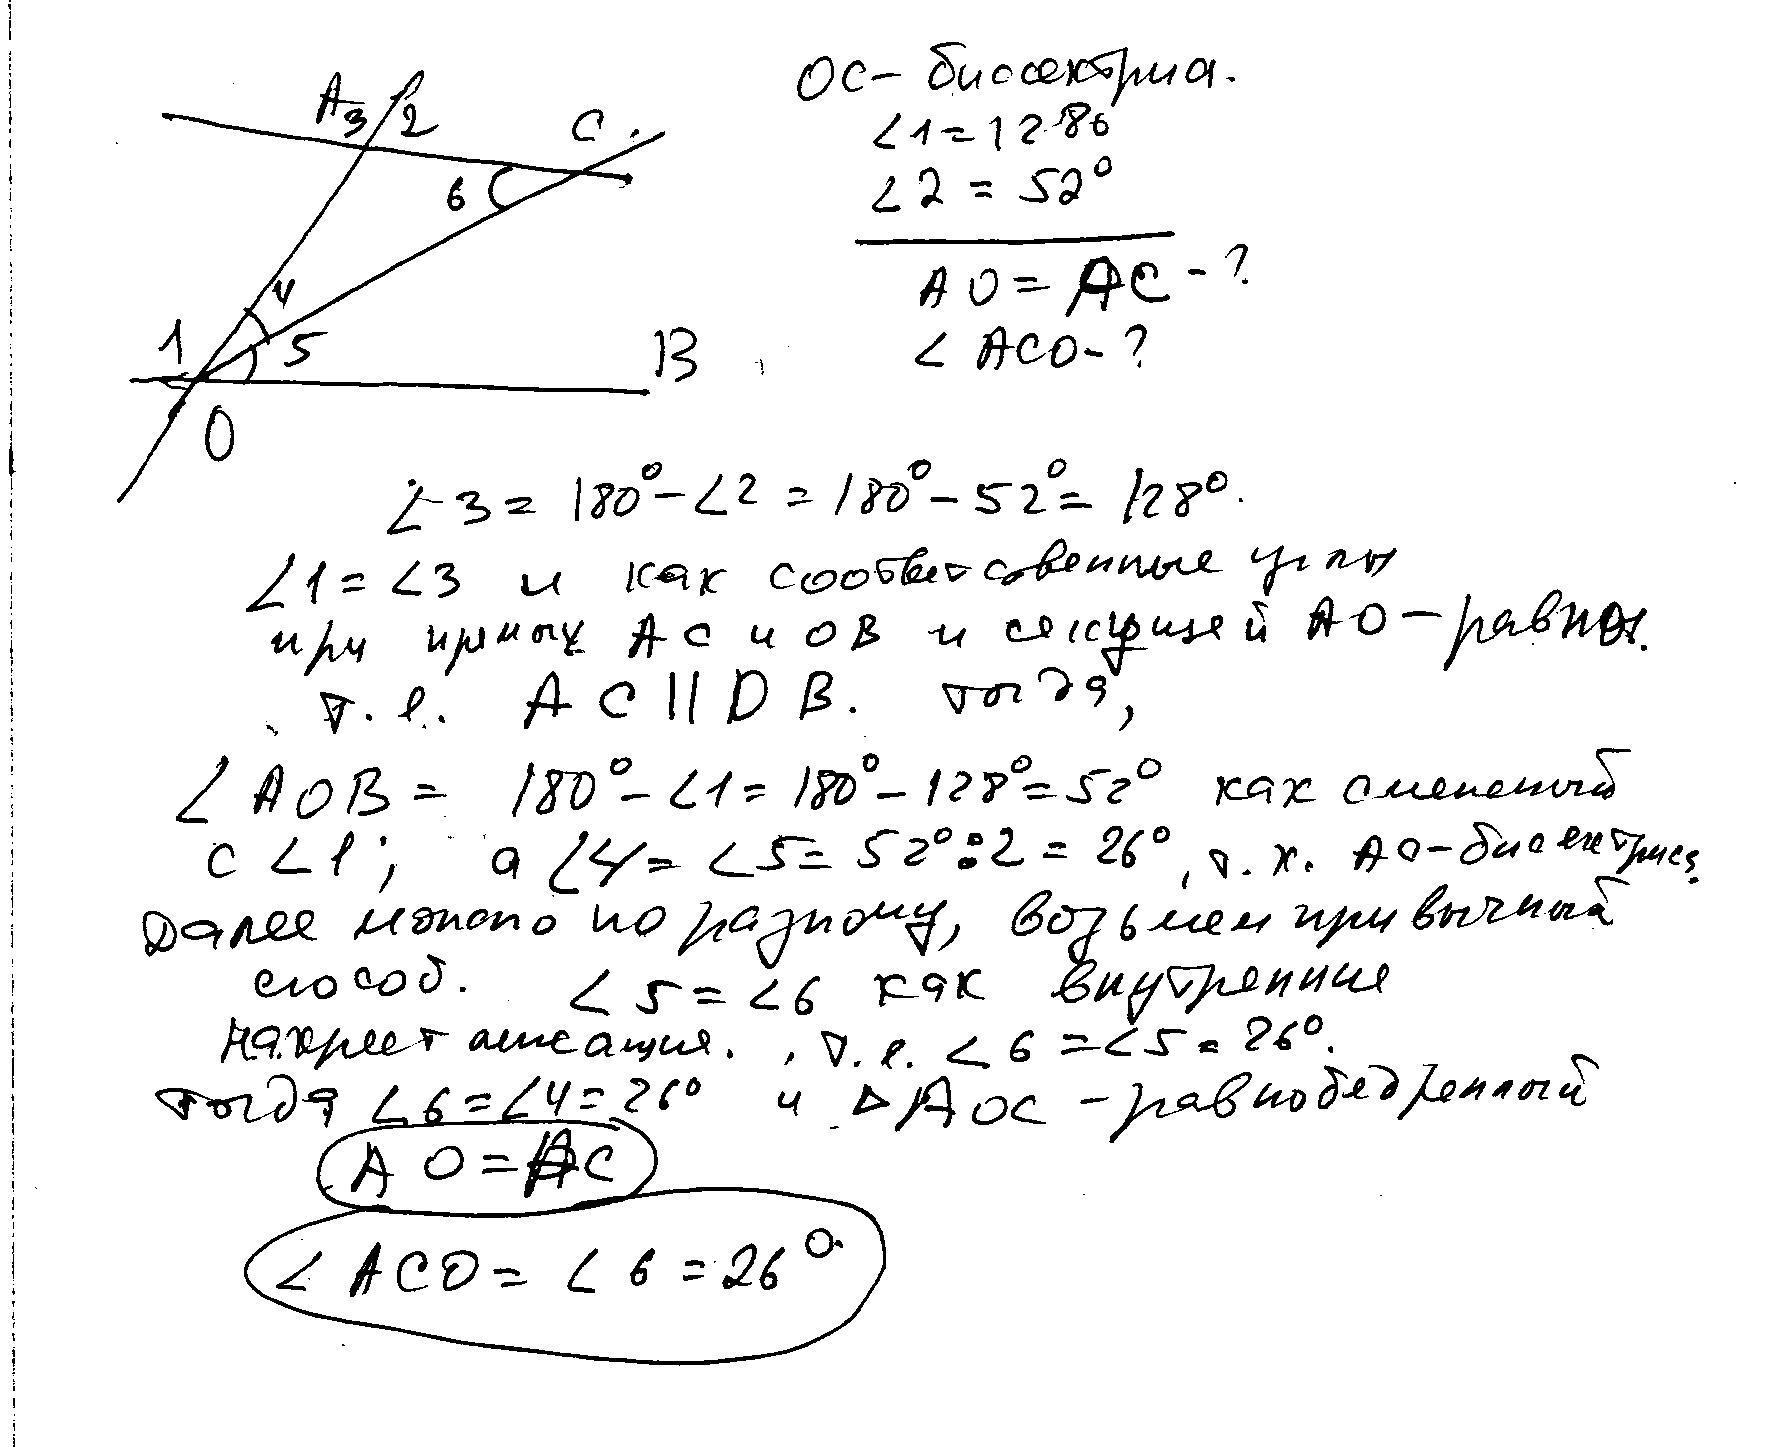 A 3 2 C
6
4
1 5 B
O
OC - биссектриса.
∠1 = 128°
∠2 = 52°
AO = AC - ?
∠ ACO - ?
∠3 = 180° - ∠2 = 180° - 52° = 128°.
∠1 = ∠3 и как соответственные углы
при прямых AC и OB и секущей AO - равны.
т.е. AC || OB. тогда,
∠AOB = 180° - ∠1 = 180° - 128° = 52° как смежный
с ∠1; а ∠4 = ∠5 = 52° : 2 = 26°, т.к. AO - биссектриса.
Далее можно по разному, возьмем привычный
способ. ∠5 = ∠6 как внутренние
накрест лежащие., т.е. ∠6 = ∠5 = 26°.
тогда ∠6 = ∠4 = 26° и △AOC - равнобедренный
AO = AC
∠ ACO = ∠6 = 26°